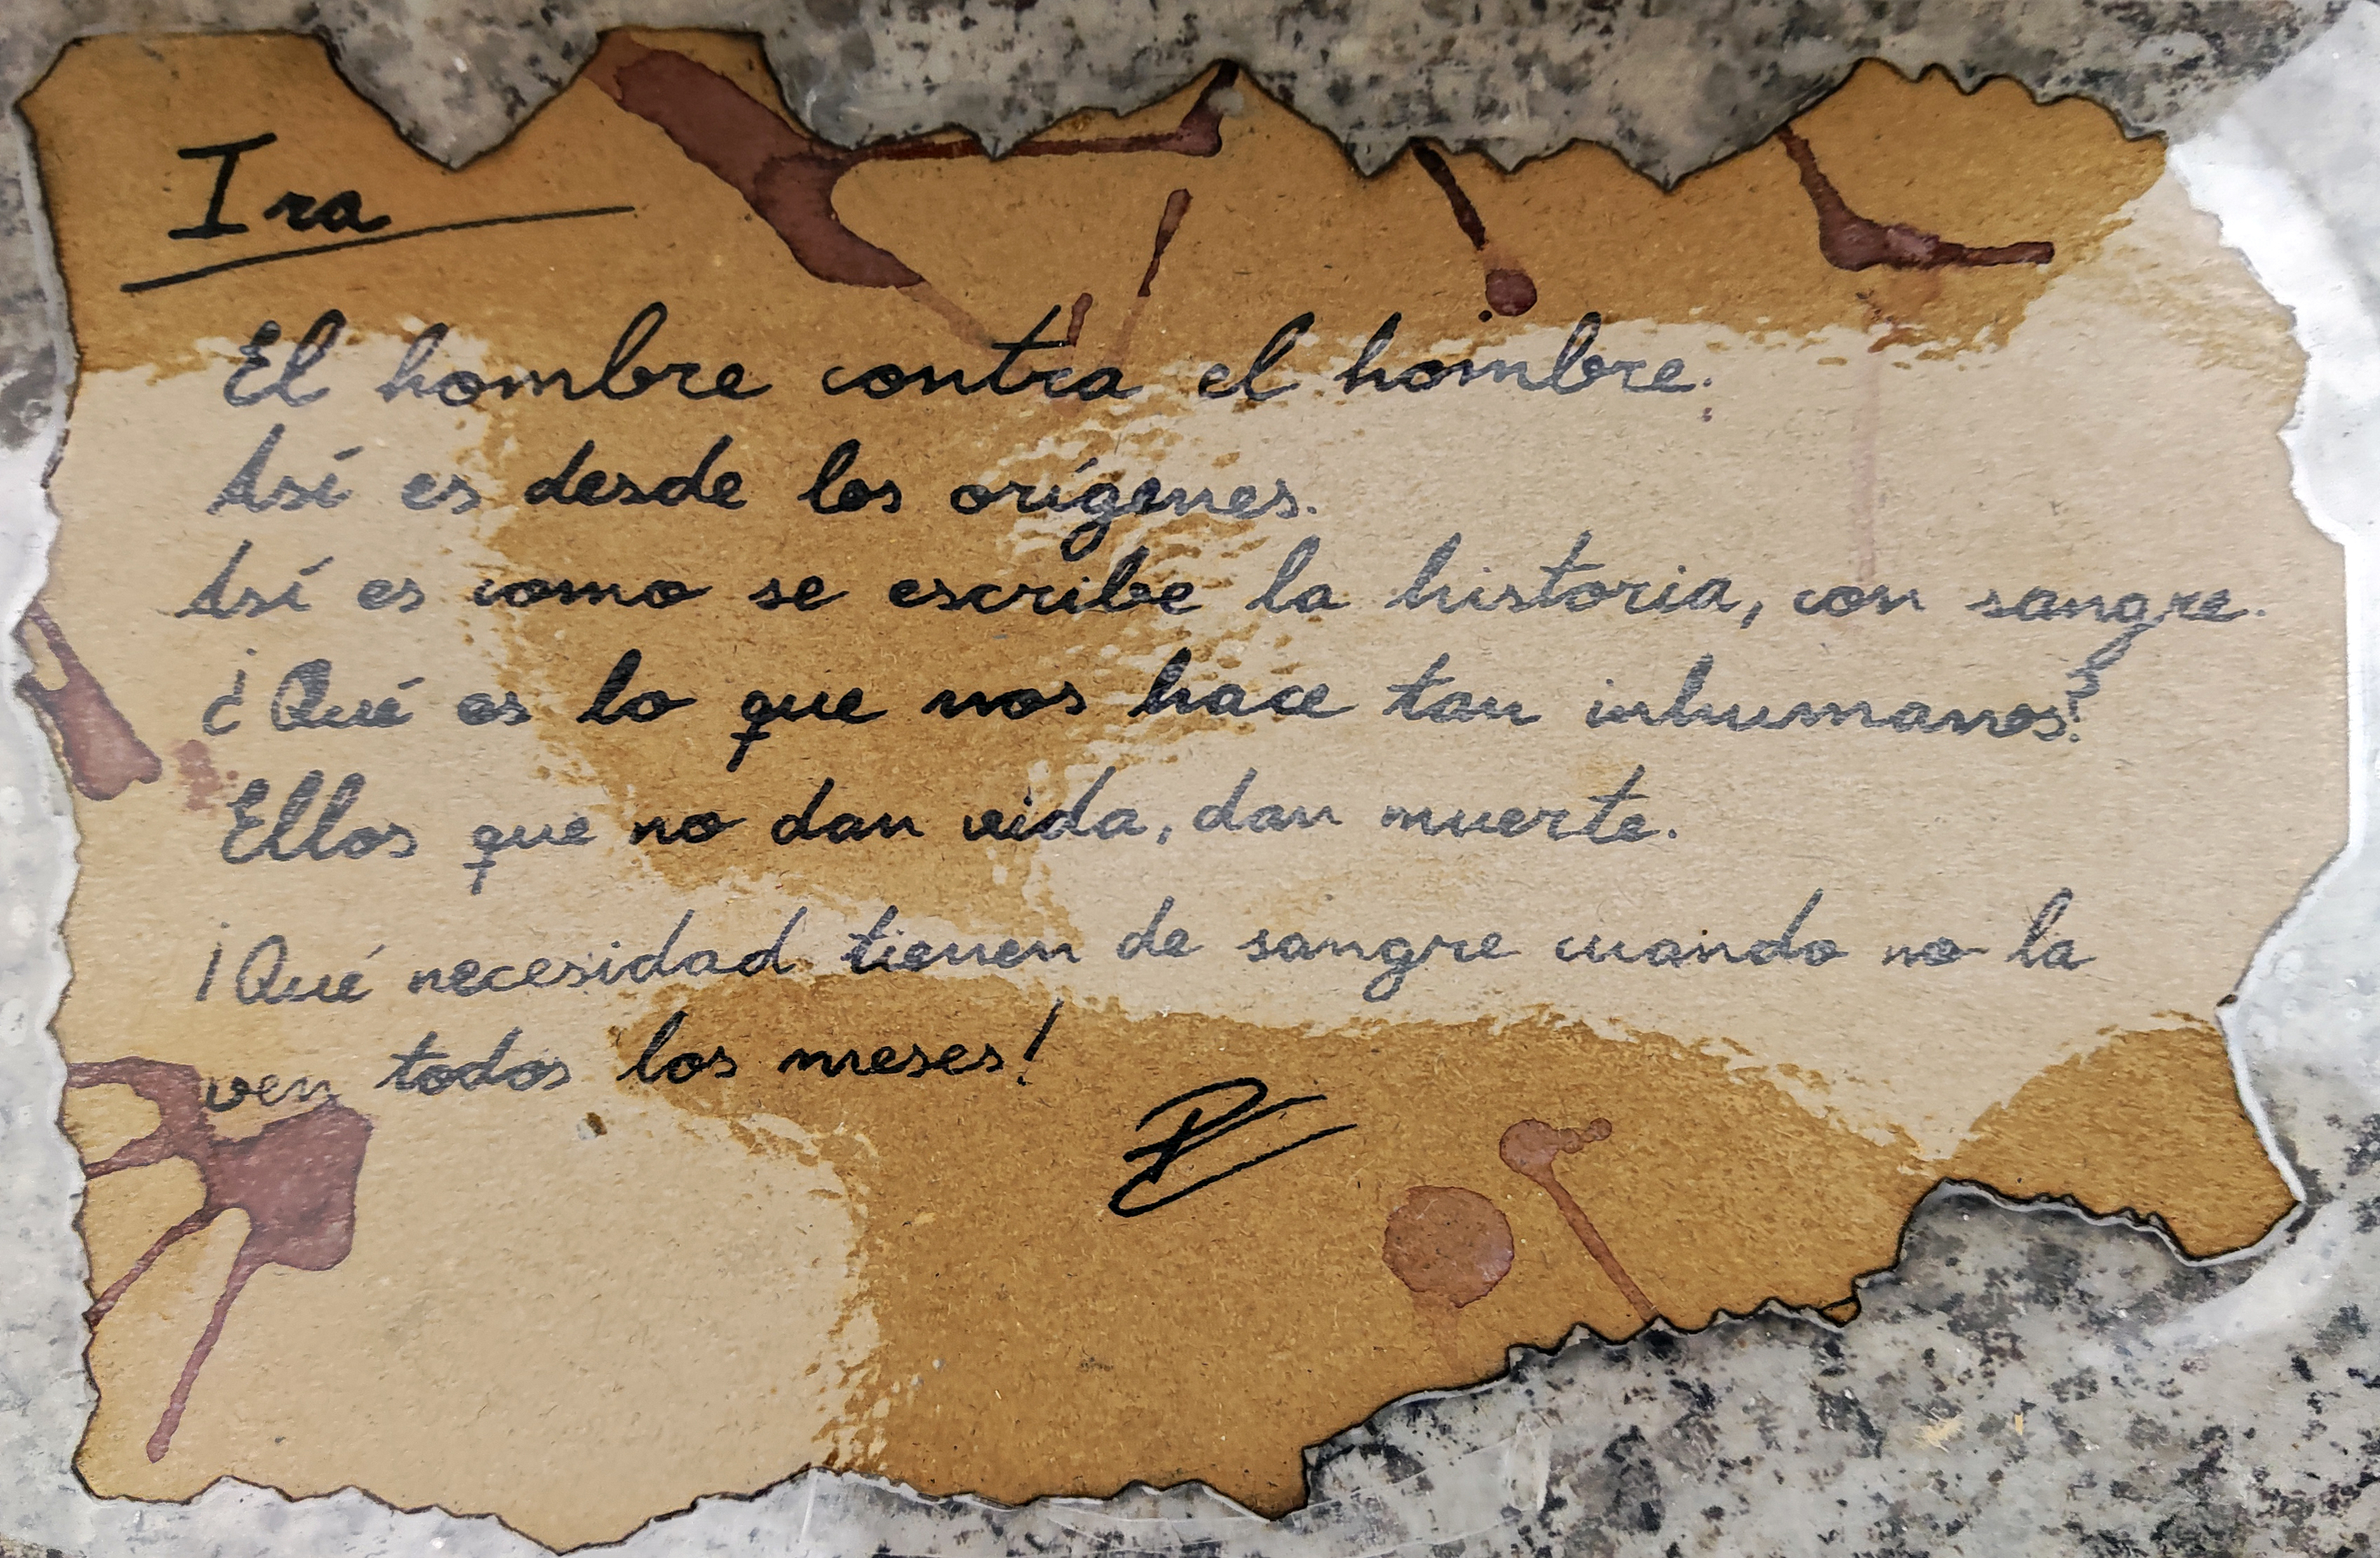 Ira
El hombre contra el hombre.
Así es desde los orígenes.
Así es como se escribe la historia, con sangre.
¿¡Qué es lo que nos hace tan inhumanos!?
Ellos que no dan vida, dan muerte.
¡Qué necesidad tienen de sangre cuando no la
ven todos los meses!